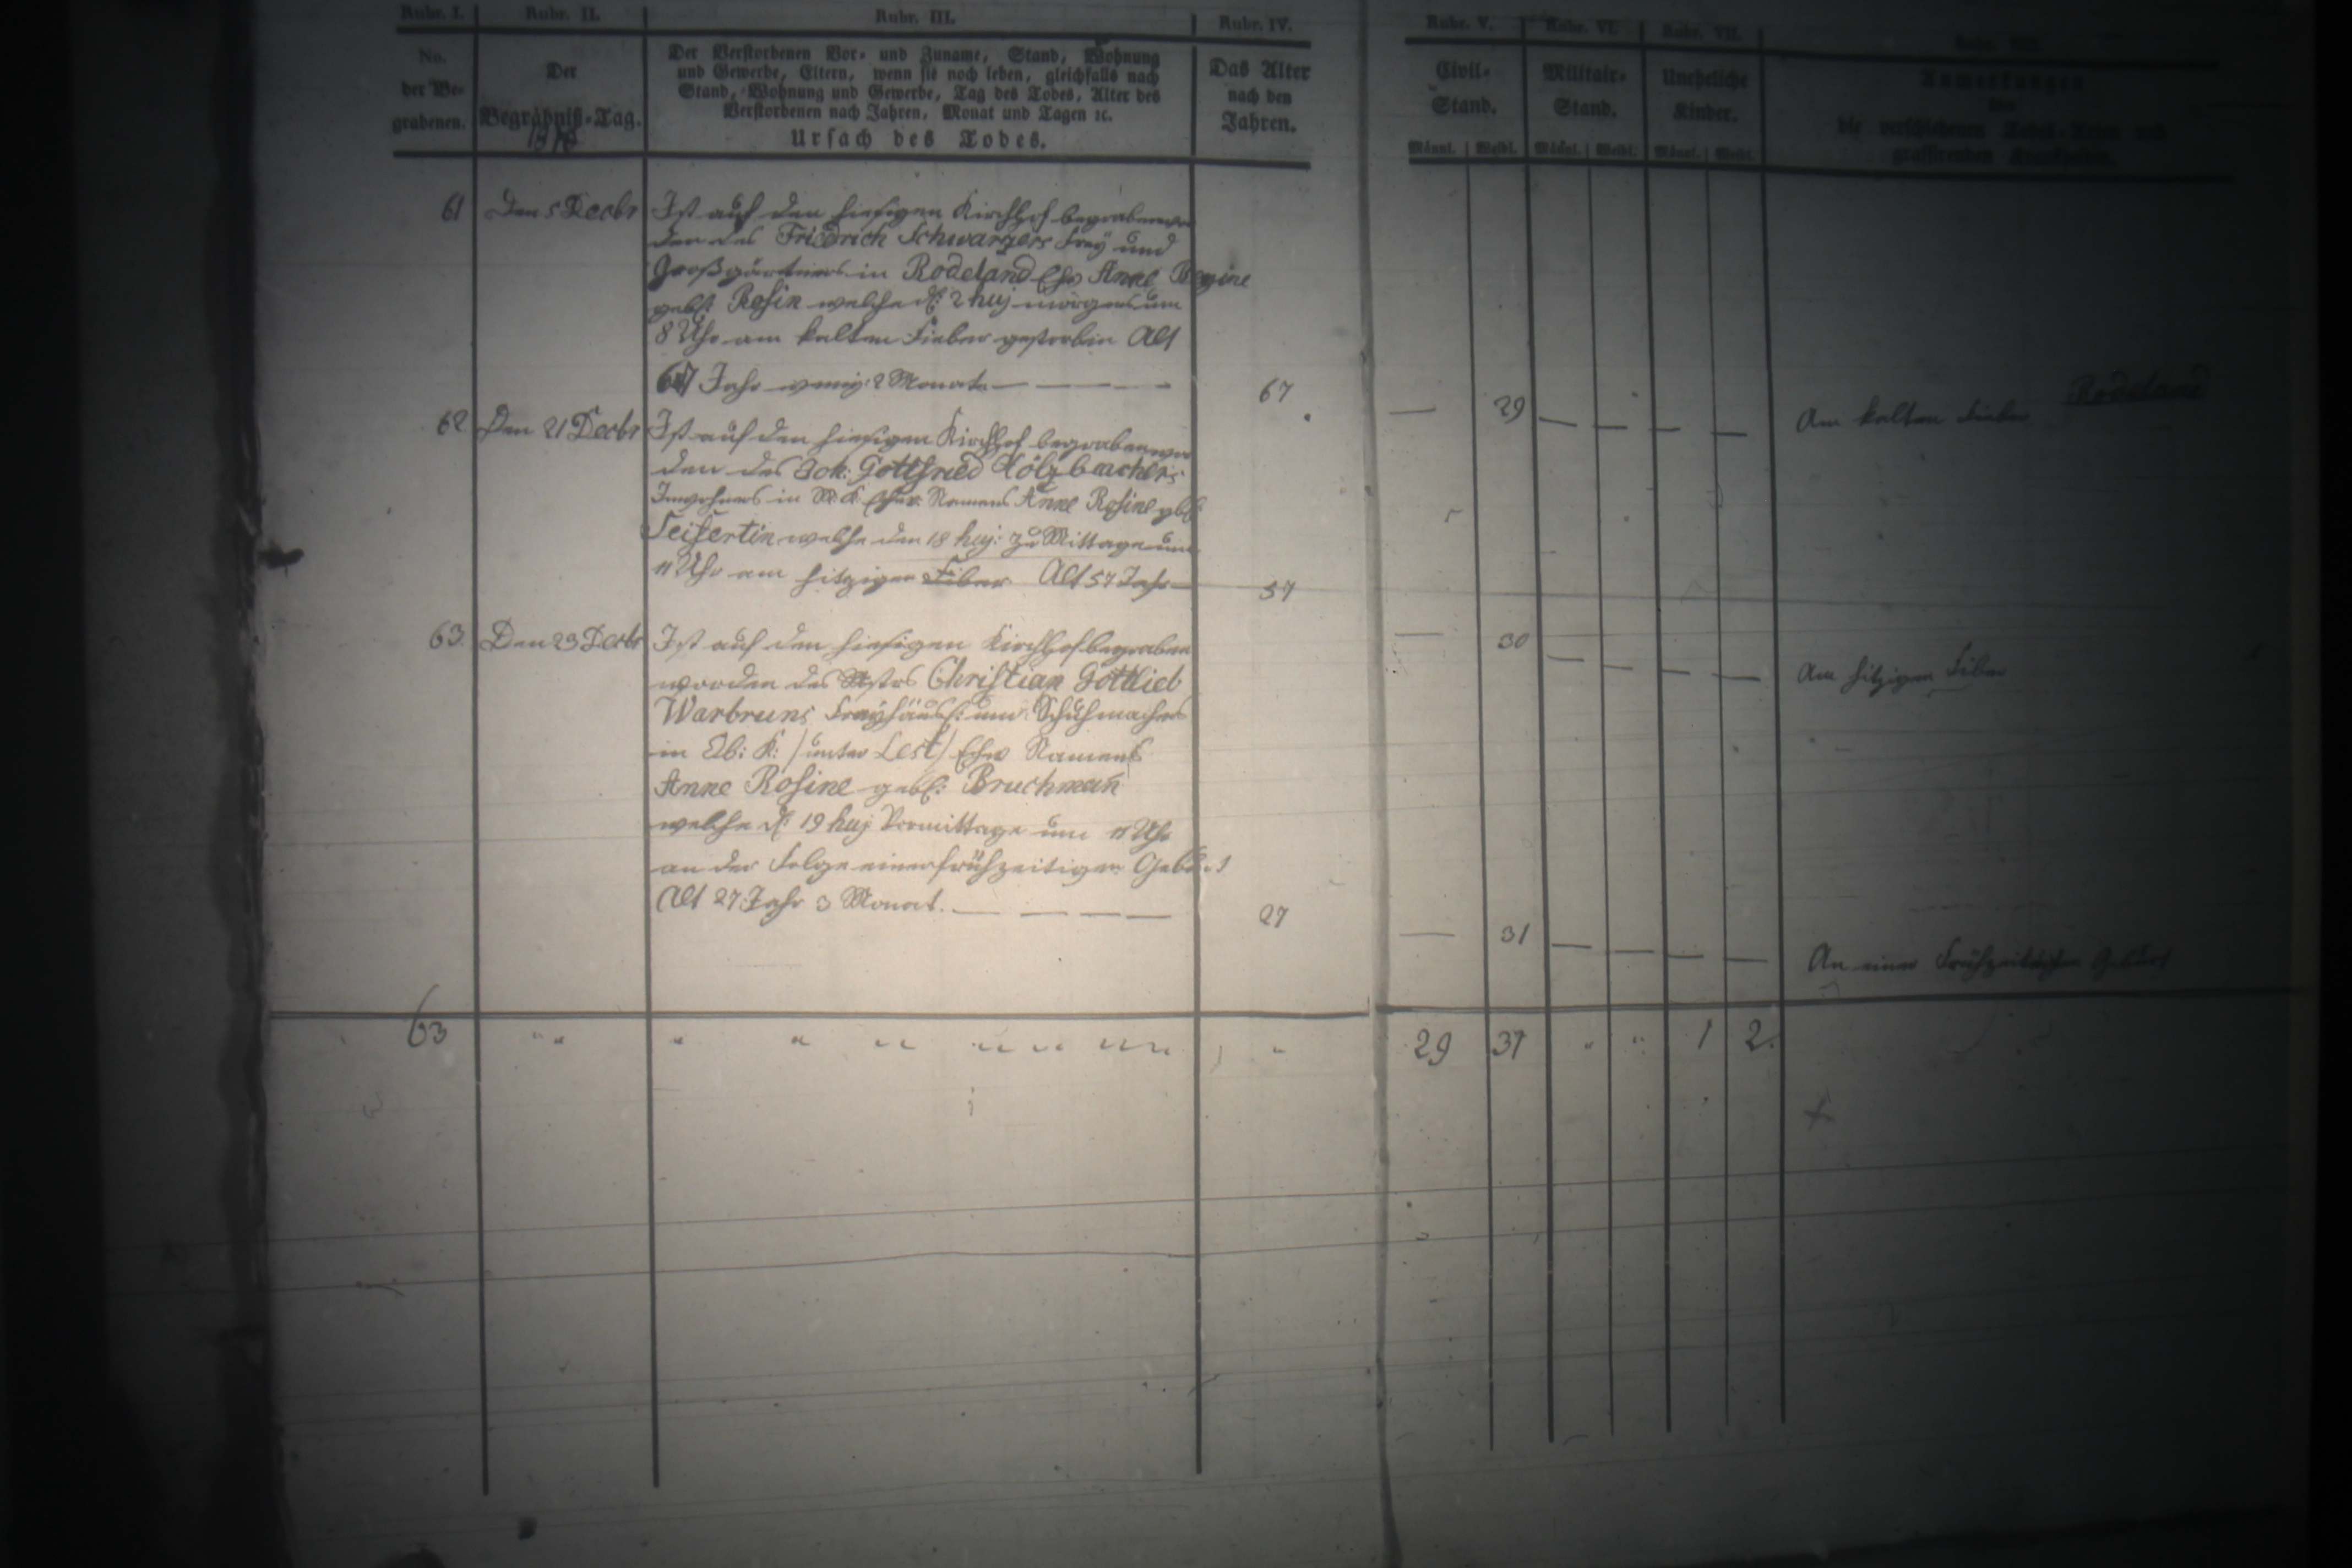 Rubr. I.
No.
der Be-
grabenen.
Rubr. II.
Der
Begräbniß-Tag.
Rubr. III.
Der Verstorbenen Vor- und Zuname, Stand, Wohnung
und Gewerbe, Eltern, wenn sie noch leben, gleichfalls nach
Stand, Wohnung und Gewerbe, Tag des Todes, Alter des
Verstorbenen nach Jahren, Monat und Tagen ꝛc.
Ursach des Todes.
Rubr. IV.
Das Alter
nach den
Jahren.
Rubr. V.
Civil-
Stand.
Männl. Weibl.
Rubr. VI.
Militair-
Stand.
Männl. Weibl.
Rubr. VII.
Uneheliche
Kinder.
Männl. Weibl.
Rubr. VIII.
Anmerkungen
über
die verschiedenen Todes-Arten und
grassirenden Krankheiten.
61
Den 5 Decbr
Ist auf den hiesigen Kirchhof begraben wor
den des Friedrich Schwarzers Frey und
Großgärtners in Rodeland Ehw Anne Regine
geb: Rosin welche d: 2 huj morgens um
8 Uhr am kalten Fieber gestorben Alt
67 Jahr wenig: 2 Monate — — — —
67
— 29 — — — —
Am kalten Fieber Rodeland
62
Den 21 Decbr
Ist auf den hiesigen Kirchhof begraben wor
den des Joh: Gottfried Hölzbechers
Inwohners in Namens Anne Rosine geb:
Seifertin welche den 18 huj: zu Mittage um
11 Uhr am hitzigen Fiber Alt 57 Jahr —
57
— 30 — — — —
Am hitzigen Fiber
63.
Den 23 Decbr
Ist auf den hiesigen Kirchhof begraben
worden des Mstrs Christian Gottlieb
Warbruns Freyhäusl: und Schuhmachers
in Ob: K: / unter Lest / Ehw Namens
Anne Rosine geb: Bruchmañ
welche d: 19 huj Vormittage um 11 Uhr
an der Folge einer frühzeitigen Geburt
Alt 27 Jahr 3 Monat. — — — —
27
— 31 — — — —
An einer Frühzeitigen Geburt
63 29 31 " " 1 2.